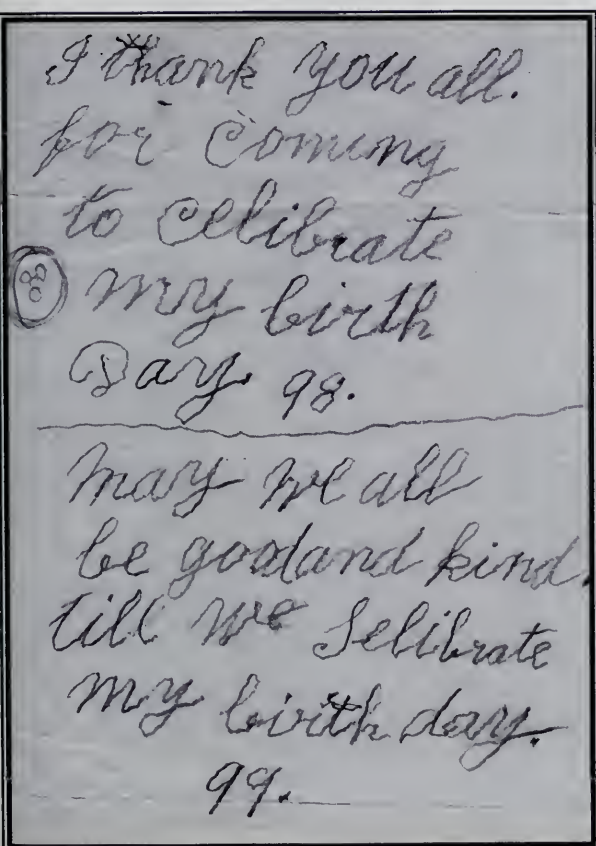 I thank you all.
for coming
to celibrate
my birth
Day. 98.
may we all
be good and kind.
till we selibrate
my birth day.
99.